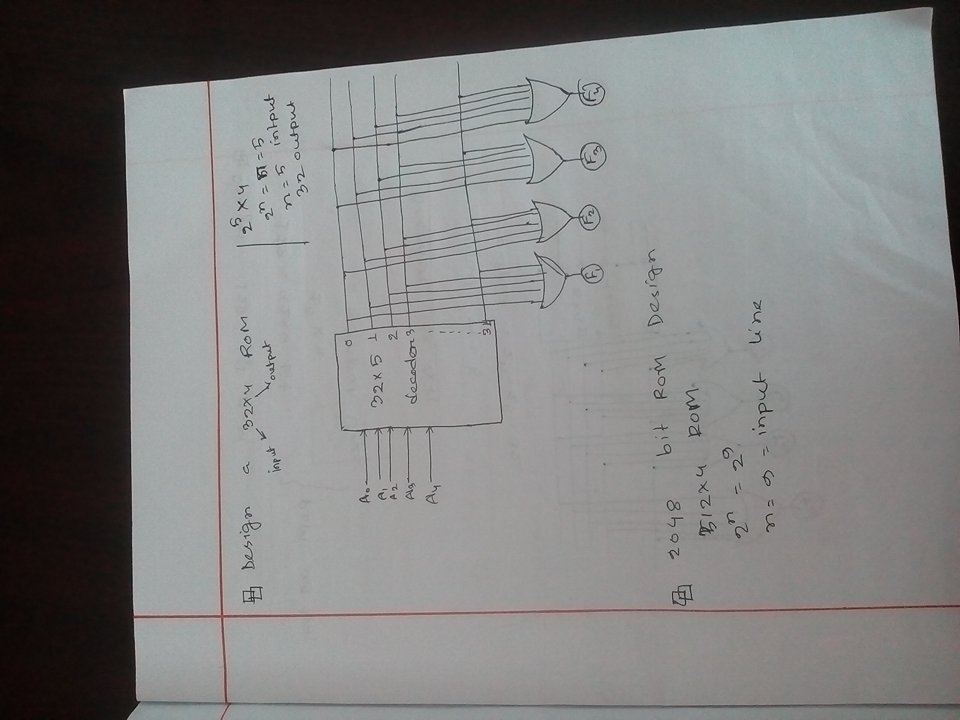 Design a 32×4 ROM
input output
2⁵ × 4
2ⁿ = 5 = 5
n = 5 intput
32 output
A₀
A₁
A₂
A₃
A₄
32 × 5
decoder
0
1
2
3
31
F₁ F₂ F₃ F₄
2048 bit ROM Design
512×4 ROM
2ⁿ = 2⁹
n = 9 = input line